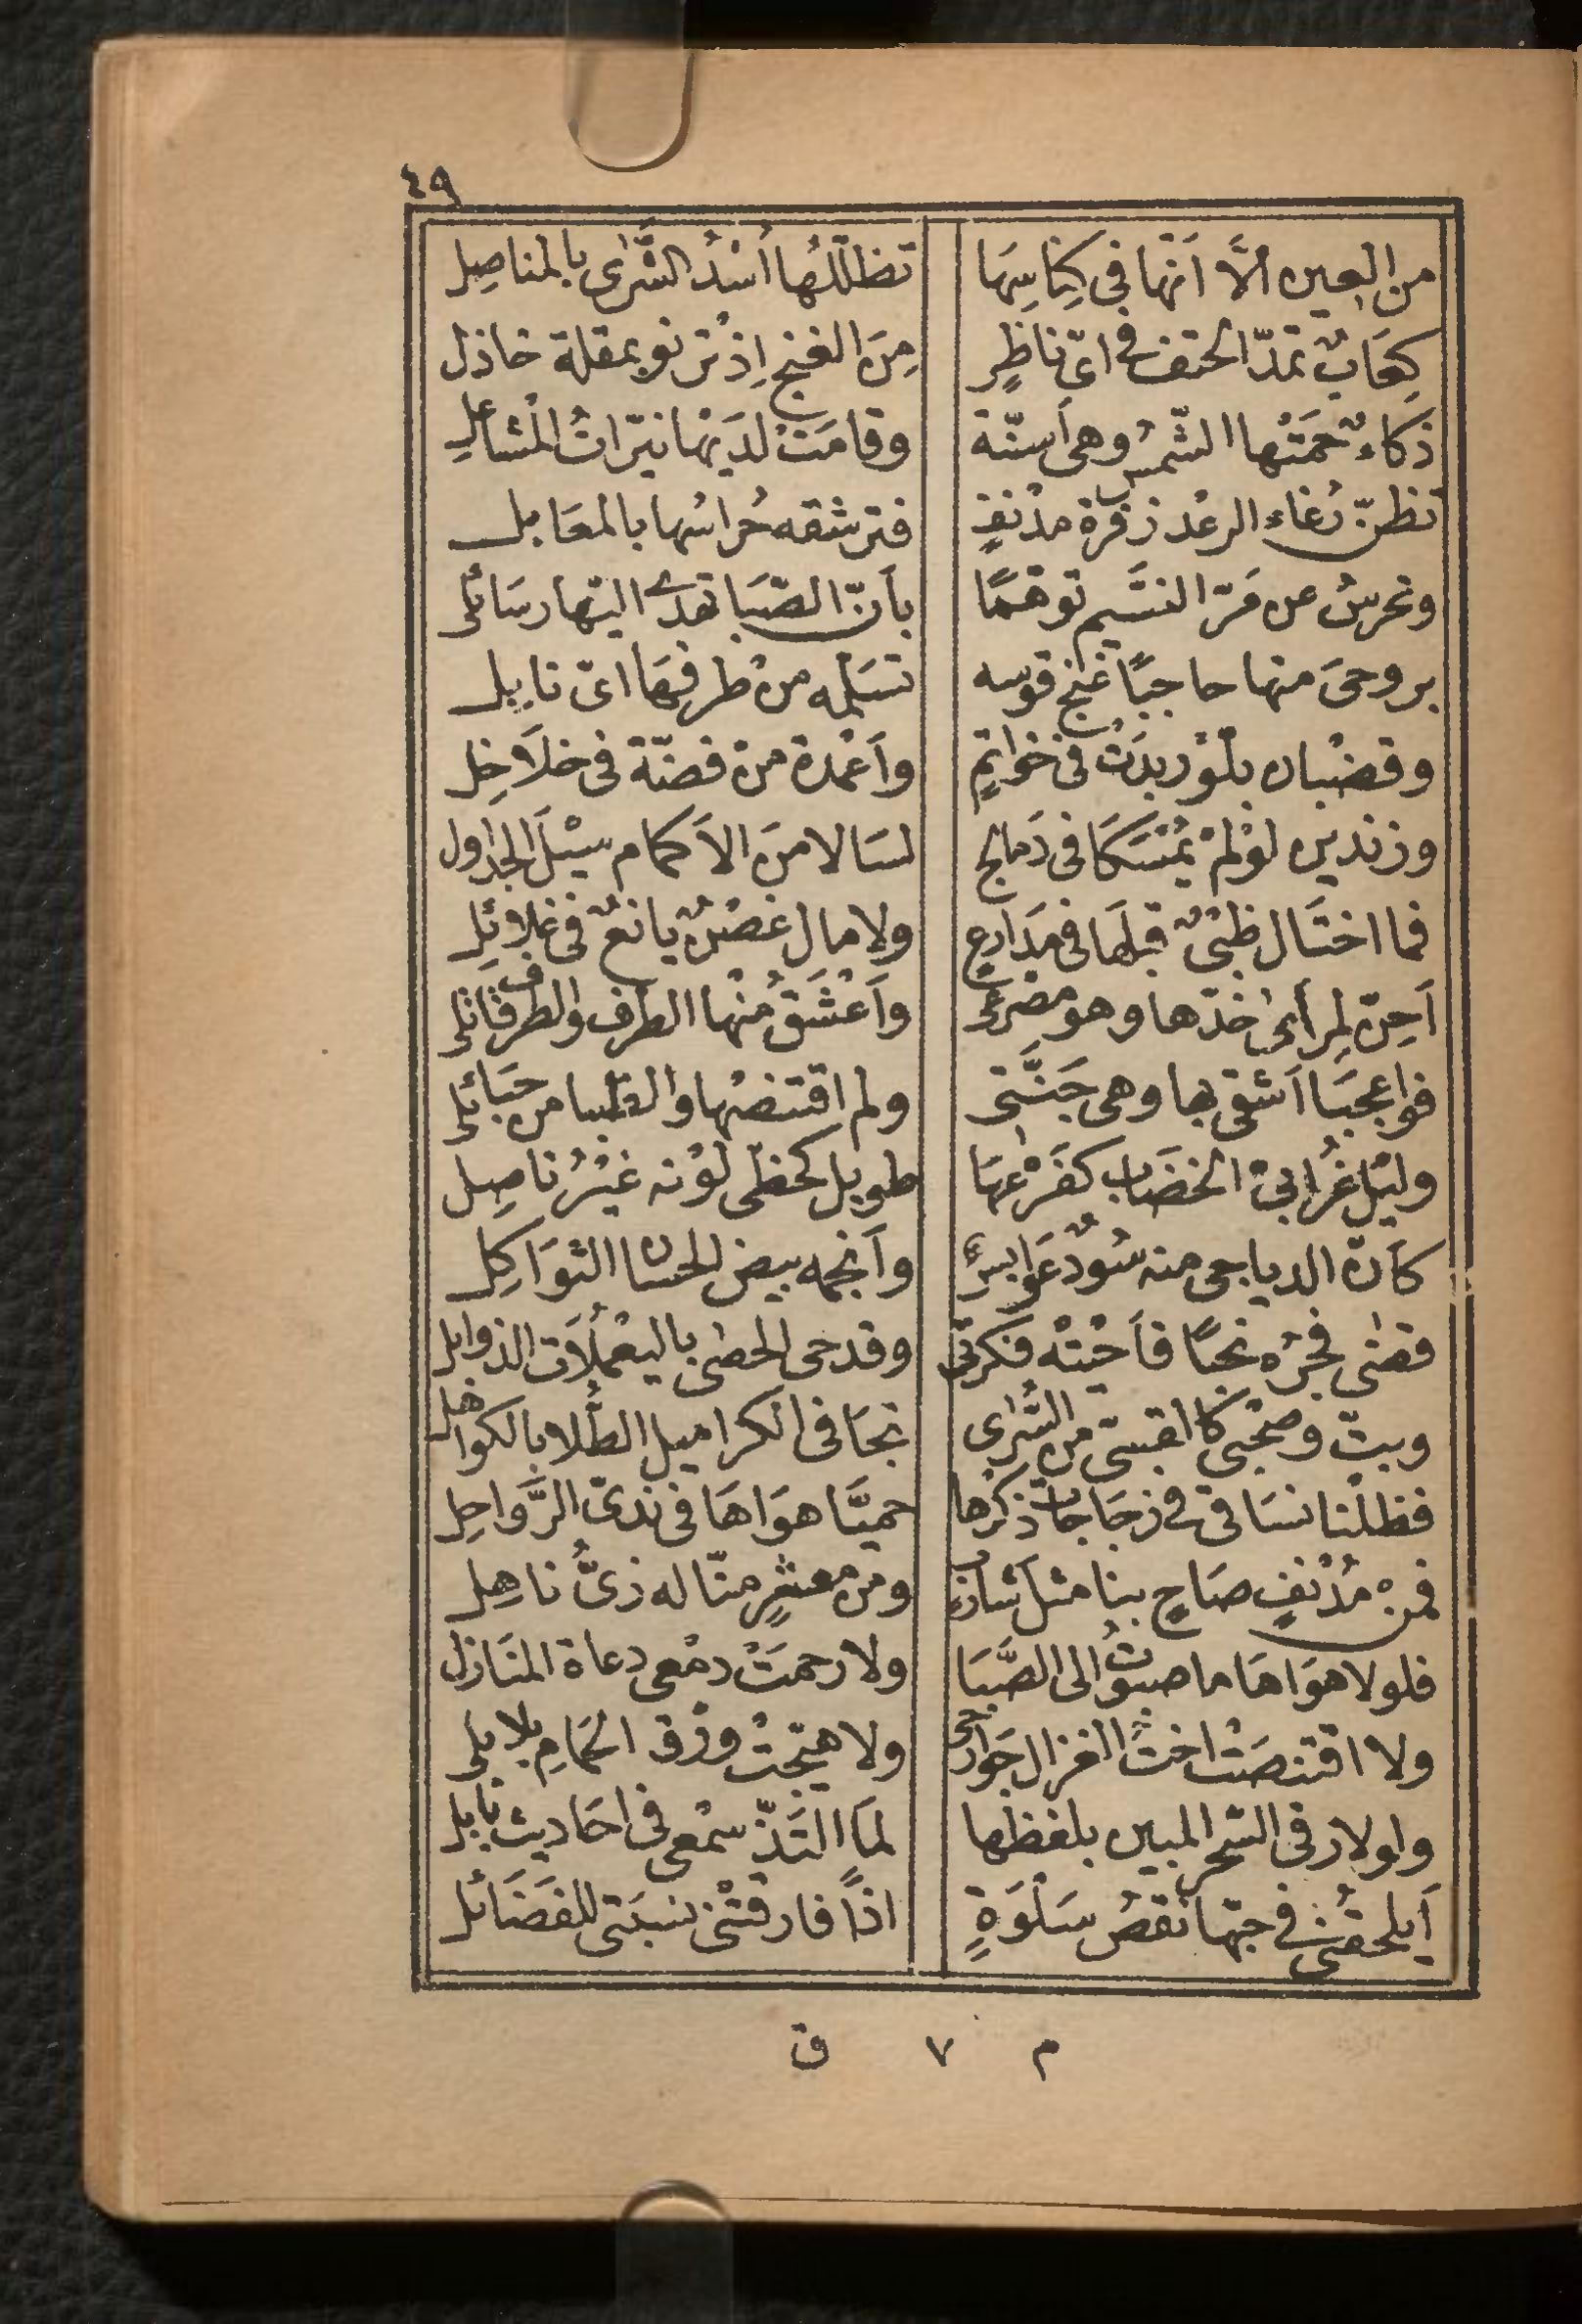 ٤٩
من العين الَّا اَنّها فى كِنَاسِهَا تظلّلُها اُسْدُ الشَّرٰى بالمناصِل
كِعَابٌ تمدّ الحتف فى اىّ ناظرٍ مِنَ الغنج اِذْ ترنو بمقلة خاذل
ذَكاءٌ حمَتْها الشّمسُ وهى اَسنّة وقامَتْ لدَيْها نيّراتُ المْشاعلِ
تظنّ رُغاء الرعْد زفْرة مدْنفٍ فترشقه حُراسُها بالمعَابل
وتحرسُ عن مَرّ النسَّيم توهّمًا بأنّ الصّبَا تهدى اليْها رسَائلى
بروحىَ منها حاجبًا غنج قوسه تسَلمه منْ طرفهَا اىّ نابِل
وقضْبان بلّوْر بدَتْ فى خوَاتمٍ واَعْمدة منْ فضّة فى خلَاخِل
وزندين لوْ لمْ يُمْسَكَا فى دَمالج لسَالا منَ الاَكمام سيْلَ الجدَاول
فما اختَال ظبْىٌ قبلَها فى مَدَارعٍ ولا مال غصْنٌ يانعٌ فى غلائِل
اَحِنّ لمِرأى خدّها وهو مصْرعى واَعْشَقُ منْها الطرْف والطرْف قَاتلى
فواعجبَا اَشقى بها وهى جَنَّتى ولم اقتنصْها والظبا من حبَائلى
وليْل غُرابىّ الخضَاب كفَرْعهَا طويل كحظّى لوْنه غيْرُ ناصِل
كأنّ الدياجى منه سُودٌ عَوابسٌ واَنجمه بيض الحسان الثوَاكِل
قضٰى فجرُه نحبًا فأحْيَتْه فكرتى وقد حمى الحصٰى باليعْمُلَات الذوابل
وبتّ وصحْبى كالقسىّ من السُّرٰى تجَافى الكرا ميل الطُّلا بالكواهل
فظلْنا نسَاقى فى زجَاجات ذكْرها حميَّا هوَاهَا فى ندىّ الرَّواحِل
فمنْ مُدْنفٍ صَاحٍ بنا مثل شاربٍ ومنْ معشرٍ منّا له زىُّ ناهِل
فلولا هوَاهَا ما صبوْتُ الى الصَّبَا ولا رحمَتْ دمْعى دعاة المنَازل
ولا اقتنصَتْ اختُ الغزال جَوارحى ولا هيّجَتْ ورْق الحمَامِ بلابلى
ولولا رقى السّحْر المبين بلفظها لمَا التَذّ سمْعى فى احَاديث بابل
اَيلحقُنى فى حبّها نقصُ سَلْوَةٍ اذًا فارقتْنى نسبَتى للفَضَائل
م ٧ ق